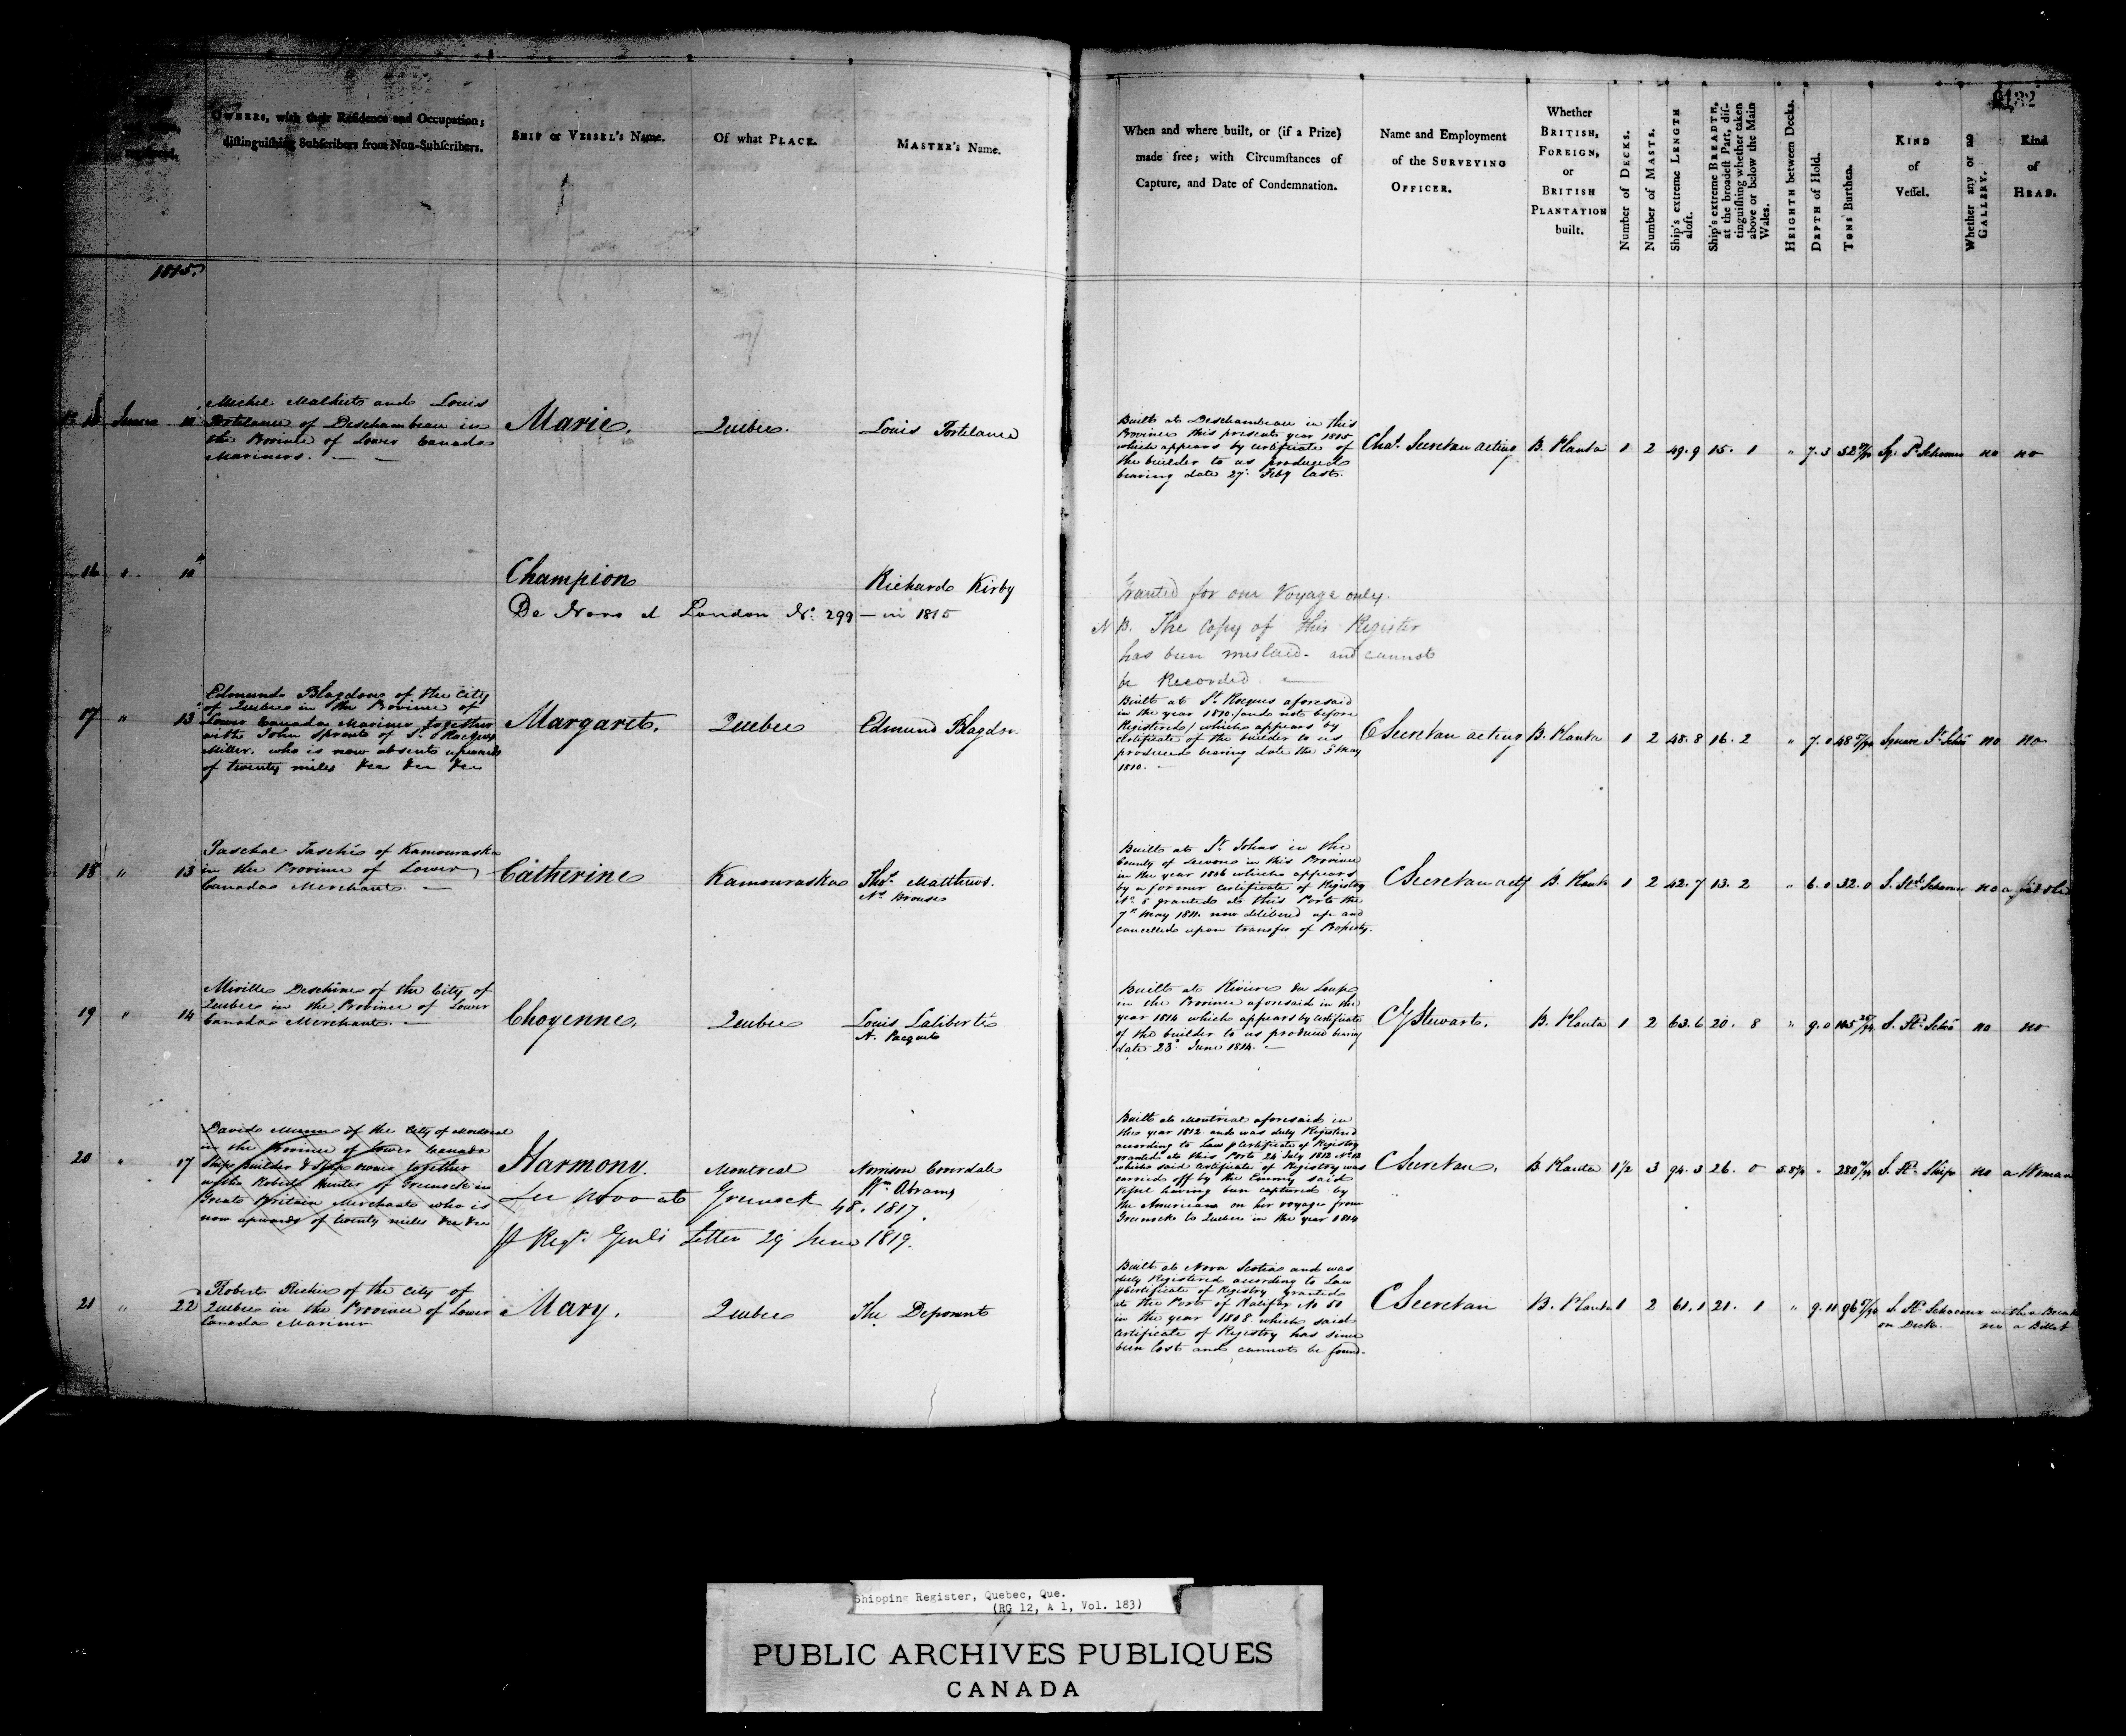 OWNERS, with their Residence and Occupation;
distinguishing Subscribers from Non-Subscribers.
SHIP or VESSEL'S Name.
Of what PLACE.
MASTER'S Name.
When and where built, or (if a Prize)
made free; with Circumstances of
Capture, and Date of Condemnation.
Name and Employment
of the SURVEYING
OFFICER.
Whether
BRITISH,
FOREIGN,
or
BRITISH
PLANTATION
built.
Number of DECKS.
Number of MASTS.
Ship's extreme LENGTH
aloft.
Ship's extreme BREADTH,
at the broadest Part, dis-
tinguishing whether taken
above or below the Main
Wales.
HEIGHTH between Decks.
DEPTH of Hold.
TONS Burthen.
KIND
of
Vessel.
Whether any or no
GALLERY.
Kind
of
HEAD.
132
1815.
June
Michel Malhiot and Louis
Portelance of Deschambeau in
the Province of Lower Canada
Mariners.
Marie.
Quebec.
Louis Portelance
Built at Deschambeau in this
Province this present year 1815
which appears by certificate of
the builder to us produced
bearing date 27 Feby last.
Chas. Secretan acting
B. Planta
1 2 49.9 15. 1 " 7.3 52 Sq. Sd. Schooner no no
16 " 10
Champion
Richard Kirby
De Novo at London No. 299 - in 1815
Granted for one Voyage only.
N B. The Copy of this Register
has been mislaid - and cannot
be Recorded.
17 " 13
Edmund Blagdon of the City
of Quebec in the Province of
Lower Canada Mariner together
with John Sprout of St. Rocques
Miller. who is now absent upwards
of twenty miles &ca &ca &ca
Margaret.
Quebec
Edmund Blagdon
Built at St. Rocques aforesaid
in the year 1810. /and not before
Registered/ which appears by
certificate of the builder to us
produced bearing date the 5 May
1810.
C Secretan acting
B. Planta
1 2 48.8 16. 2 " 7.0 48 Square St. Schr no no
18 " 13
Paschal Taschés of Kamouraska
in the Province of Lower
Canada Merchant.
Catherine
Kamouraska
Thos. Matthews.
Ns. Brousse
Built at St. Johns in the
County of Devon in this Province
in the year 1806 which appears
by a former Certificate of Registry
No. 8 granted at this Port the
7th May 1811. now delivered up and
cancelled upon transfer of Property.
C Secretan actg
B. Planta
1 2 42.7 13. 2 " 6.0 32.0 S. Std Schooner no a fiddle
19 " 14
Miville Deschêne of the City of
Quebec in the Province of Lower
Canada Merchant.
Choyenne.
Quebec
Louis Laliberté
A. Paquet
Built at Riviere du Loup
in the Province aforesaid in the
year 1814 which appears by Certificate
of the builder to us produced being
date 23d June 1814.
C G Stewart.
B. Planta
1 2 63.6 20. 8 " 9.0 S. Sd. Schr no no
20 " 17
David Munn of the City of Montreal
in the Province of Lower Canada
Ship Builder & Ship owner together
with Robert Hunter of Greenock in
Great Britain Merchant who is
now upwards of twenty miles &ca &ca
Harmony.
Montreal
Norrison Coverdale
Wm Abrams
De Novo at Greenock 48. 1817.
Pr Regr. Genls Letter 29 June 1819.
Built at Montreal aforesaid in
the year 1812 and was duly Registered
according to Law p Certificate of Registry
granted at this Port 24 July 1812 No. 12
which said Certificate of Registry was
carried off by the Enemy said
Vessel having been captured by
the Americans on her voyage from
Greenock to Quebec in the year 1814
C Secretan.
B. Planta
1½ 3 94.3 26. 0 " S. Sd. Ship no a Woman
21 " 22
Robert Richie of the City of
Quebec in the Province of Lower
Canada Mariner
Mary.
Quebec
The Deponent
Built at Nova Scotia and was
duly Registered according to Law
p Certificate of Registry granted
at the Port of Halifax No 50
in the year 1808 which said
Certificate of Registry has since
been lost and cannot be found.
C Secretan
B. Planta
1 2 61.1 21. 1 " 9.11 96 S. Sd. Schooner with a Break
on Deck. no a Billet
Shipping Register, Quebec, Que.
(RG 12, A 1, Vol. 183)
PUBLIC ARCHIVES PUBLIQUES
CANADA